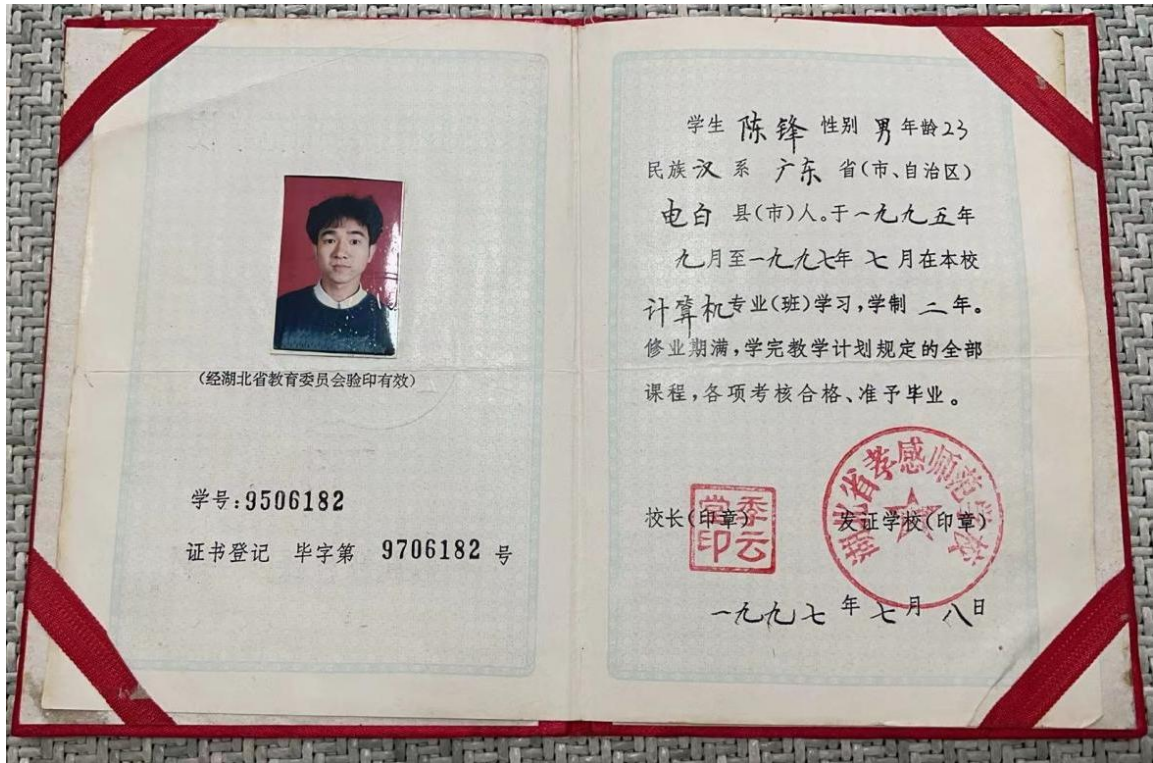 (经湖北省教育委员会验印有效)
学号:9506182
证书登记 毕字第 9706182 号
学生 陈锋 性别 男 年龄23
民族汉 系 广东 省(市、自治区)
电白 县(市)人。于一九九五年
九月至一九九七年 七 月在本校
计算机专业(班)学习,学制 二 年。
修业期满,学完教学计划规定的全部
课程,各项考核合格、准予毕业。
校长(印章)
发证学校(印章)
湖北省孝感师范学校
一九九七 年 七 月 八 日